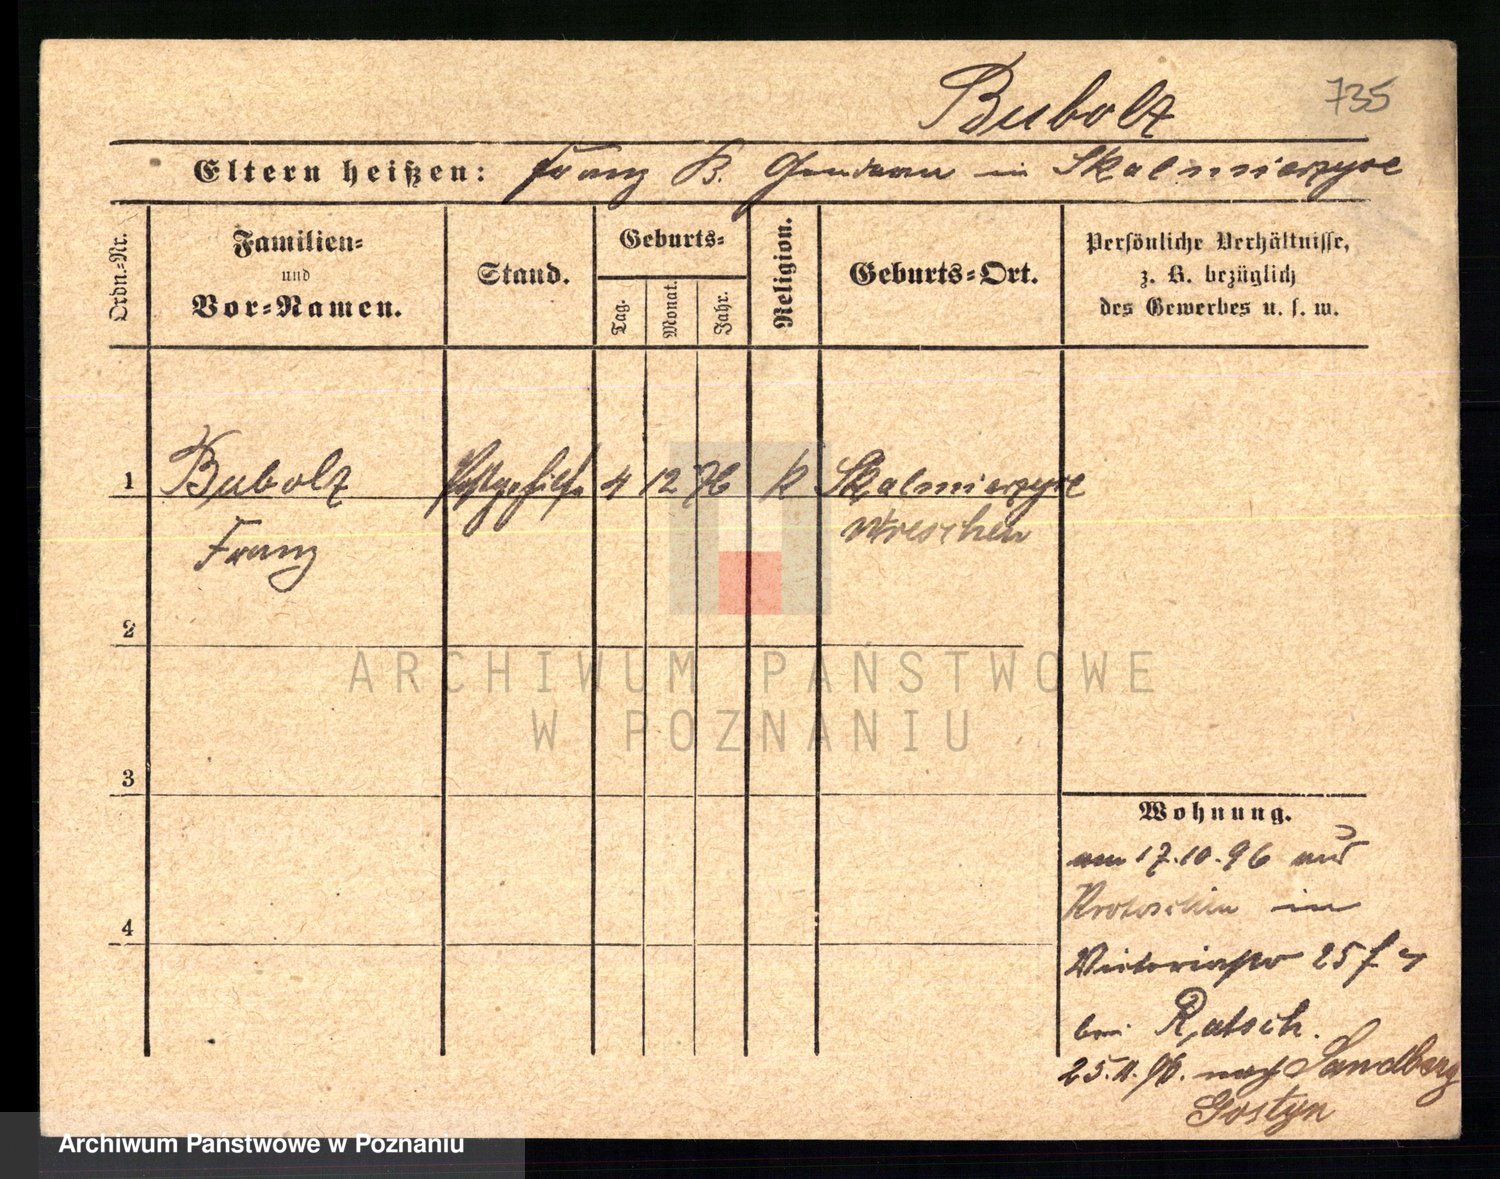 Bubolz 735
Eltern heißen: Franz B. Gendarm in Skalmierzyce
Ordn.-Nr.
Familien-
und
Vor-Namen.
Stand.
Geburts-
Tag.
Monat.
Jahr.
Religion.
Geburts-Ort.
Persönliche Verhältnisse,
z. B. bezüglich
des Gewerbes u. s. w.
1 Bubolz Postgehilfe 4 12 76 k Skalmierzyce
Wreschen
Franz
2
3
4
Wohnung.
am 17.10.96 aus
Krotoschin in
Victoriastr 25
bei Ratsch.
25.11.96. nach Sandberg
Gostyn
ARCHIWUM PAŃSTWOWE
W POZNANIU
Archiwum Państwowe w Poznaniu